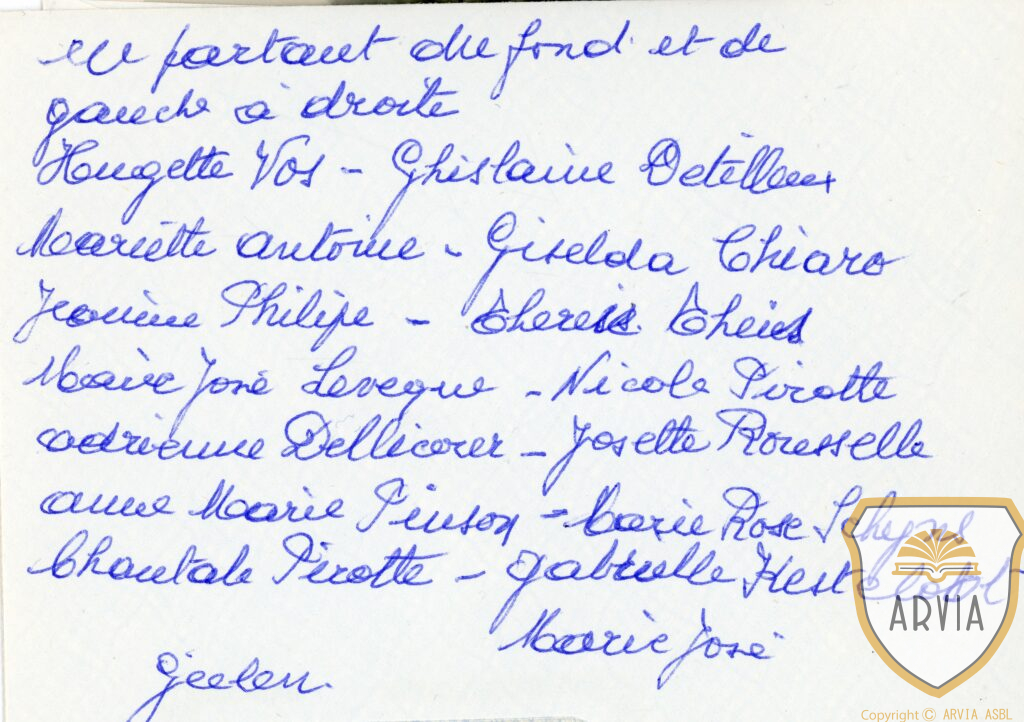 en partant du fond et de
gauche à droite
Hugette Vos - Ghislaine Detilleux
Mariette antoine - Giselda Chiaro
Jeanine Philipe - Therese Theis
Marie José Leveque - Nicole Pirotte
adrienne Dellicorer - Josette Rousselle
anne Marie Pinson - Marie Rose Schyns
Chantale Pirotte - gabrielle
Marie José
Geelen.
ARVIA
Copyright © ARVIA ASBL